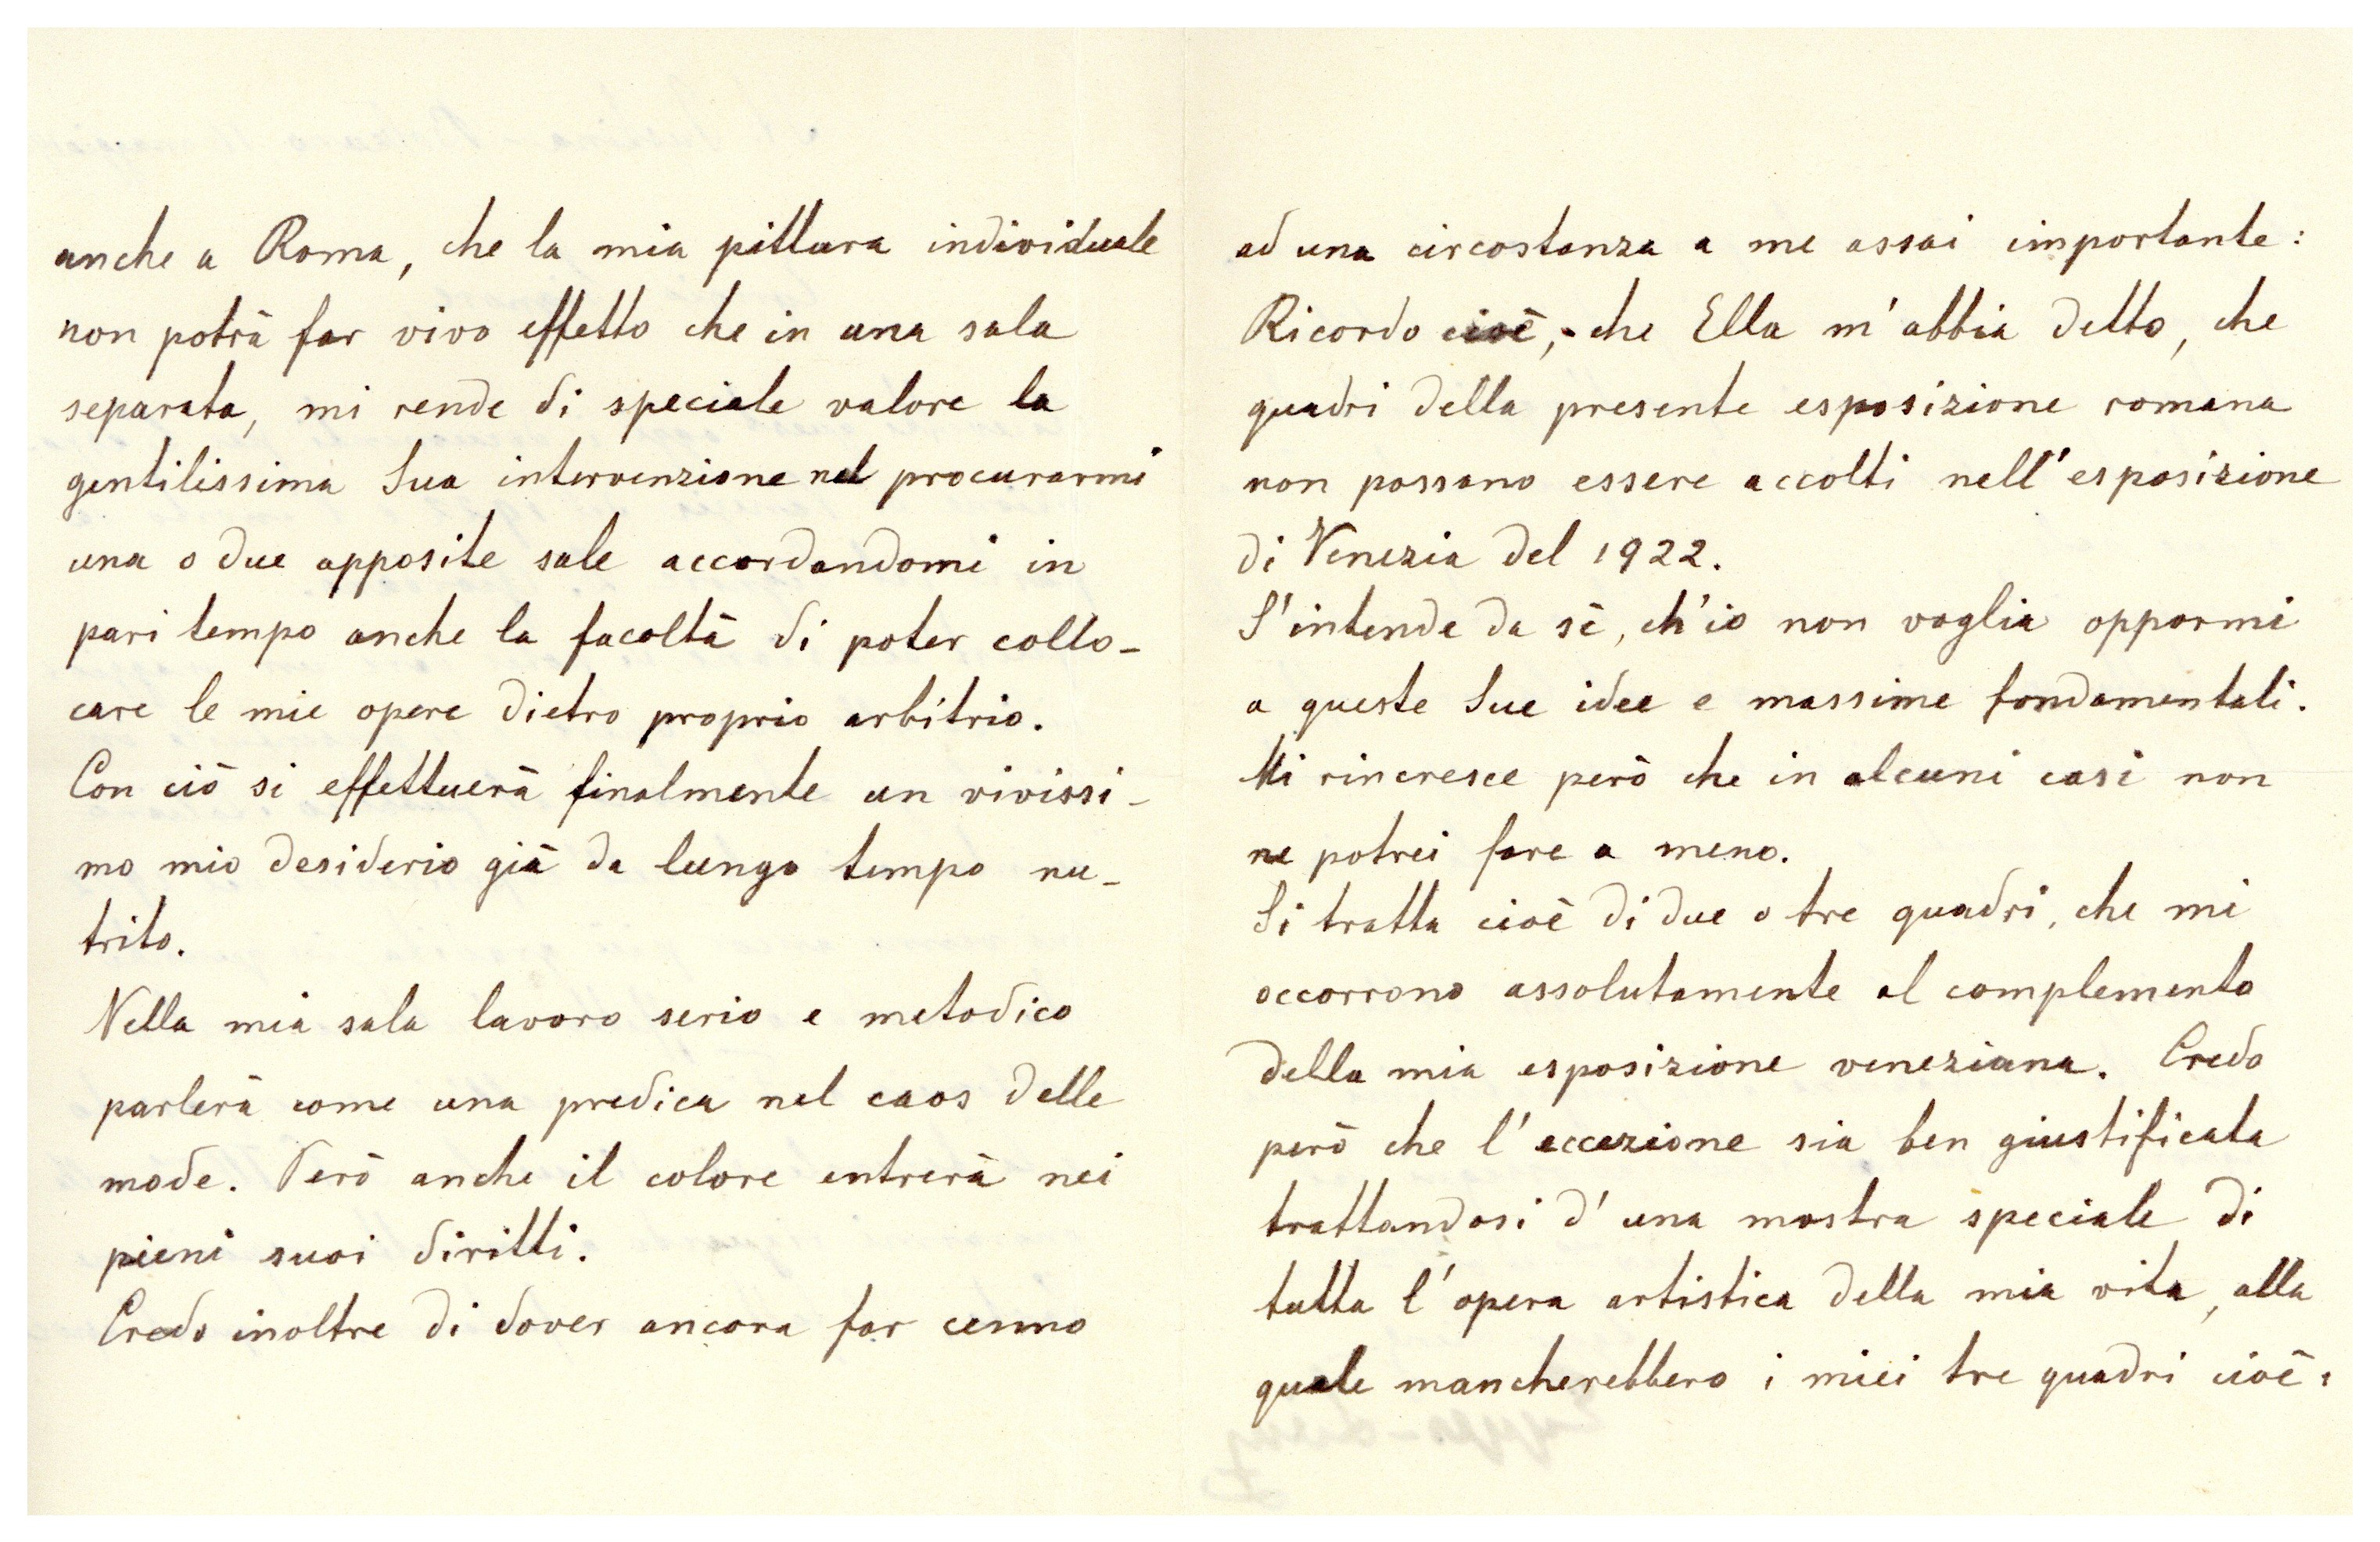 anche a Roma, che la mia pittura individuale
non potrà far vivo effetto che in una sala
separata, mi rende di speciale valore la
gentilissima Sua intervenzione nel procurarmi
una o due apposite sale accordandomi in
pari tempo anche la facoltà di poter collo-
care le mie opere dietro proprio arbitrio.
Con ciò si effettuerà finalmente un vivissi-
mo mio desiderio già da lungo tempo nu-
trito.
Nella mia sala lavoro serio e metodico
parlerà come una predica nel caos delle
mode. Però anche il colore entrerà nei
pieni suoi diritti.
Credo inoltre di dover ancora far cenno
ad una circostanza a me assai importante:
Ricordo cioè, che Ella m'abbia detto, che
quadri della presente esposizione romana
non possano essere accolti nell'esposizione
di Venezia del 1922.
S'intende da sè, ch'io non voglia oppormi
a queste Sue idee e massime fondamentali.
Mi rincresce però che in alcuni casi non
ne potrei fare a meno.
Si tratta cioè di due o tre quadri, che mi
occorrono assolutamente al complemento
della mia esposizione veneziana. Credo
però che l'eccezione sia ben giustificata
trattandosi d'una mostra speciale di
tutta l'opera artistica della mia vita, alla
quale mancherebbero i miei tre quadri cioè: